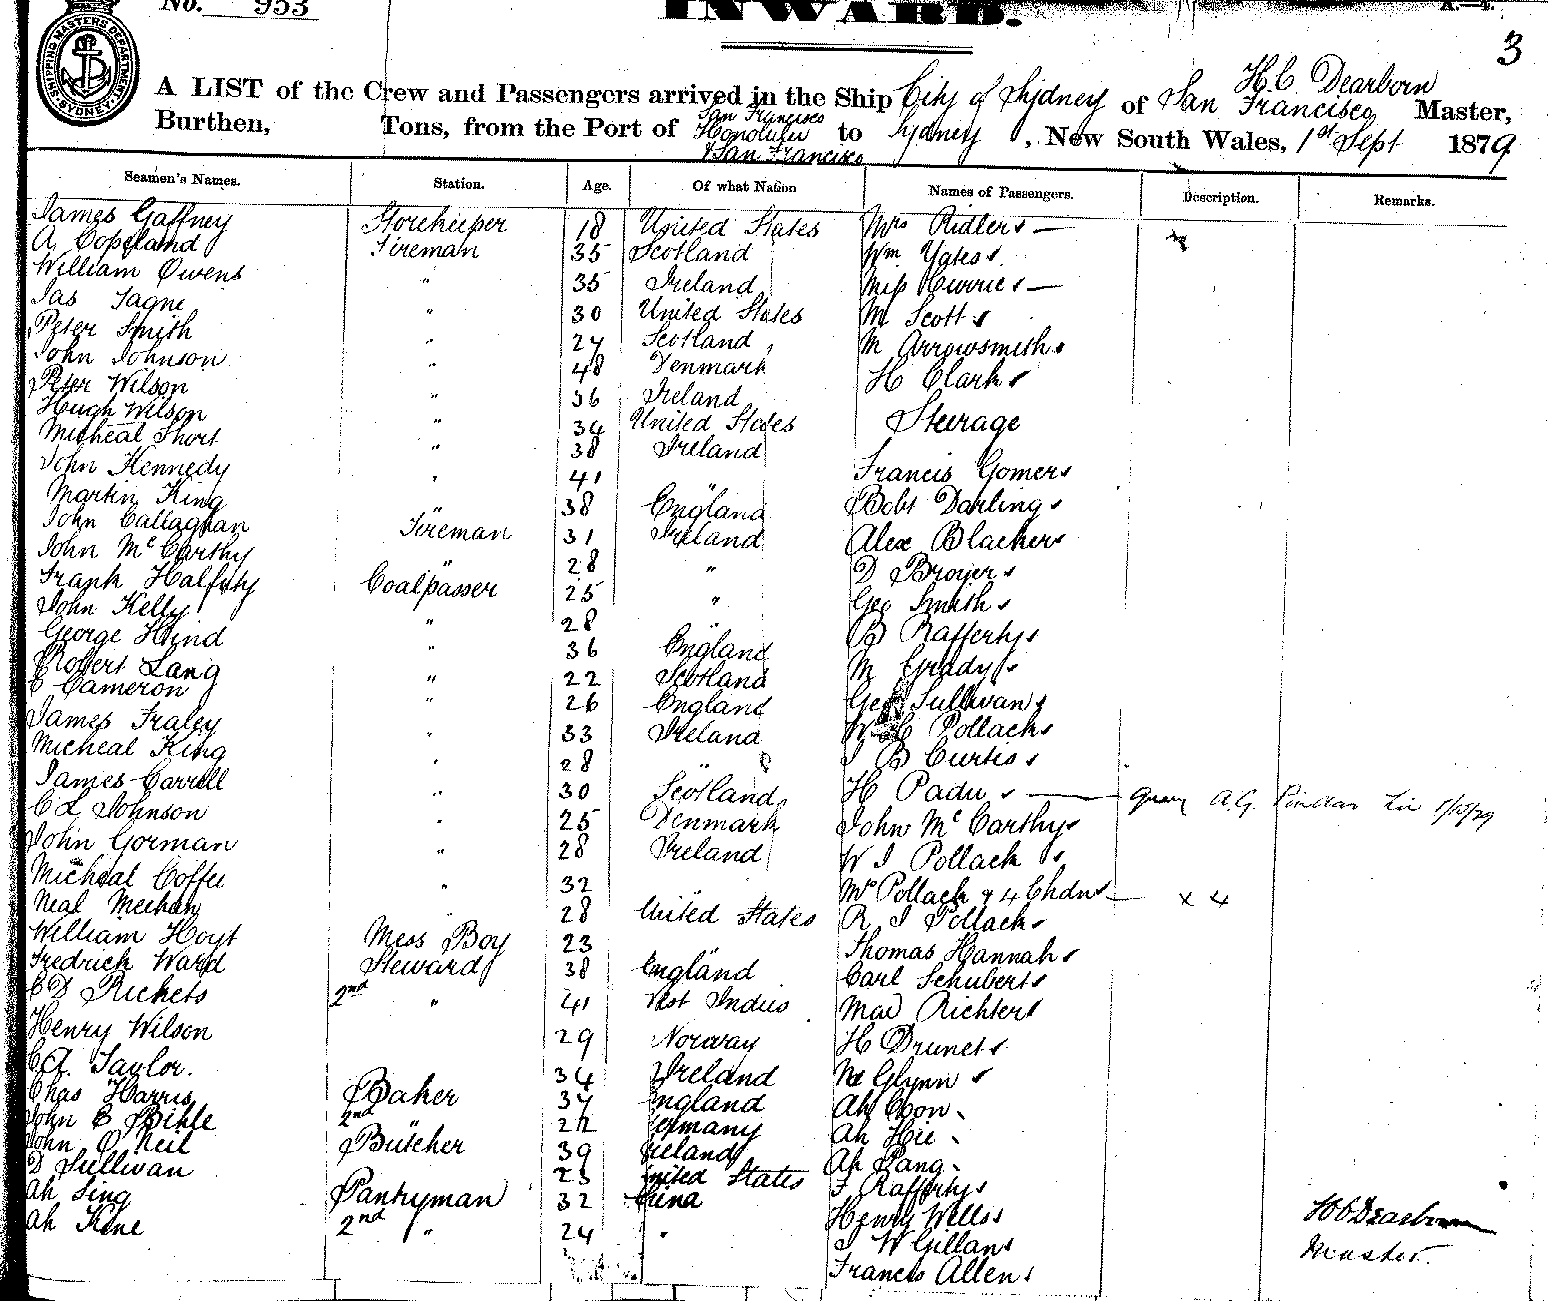 No. 953
INWARD.
A.—4.
3
SHIPPING MASTERS DEPARTMENT SYDNEY
H C Dearborn
A LIST of the Crew and Passengers arrived in the Ship City of Sydney of San Francisco Master,
Burthen, Tons, from the Port of San Francisco Honolulu & San Francisco to Sydney, New South Wales, 1st Sept 1879
Seamen's Names. Station. Age. Of what Nation Names of Passengers. Description. Remarks.
James Gaffney Storekeeper 18 United States Mrs Ridler
A Copeland Fireman 35 Scotland Wm Yates
William Owens " 35 Ireland Miss Currie
Jas " 30 United States M Scott
Peter Smith " 24 Scotland M Arrowsmith
John Johnson " 48 Denmark H Clark
Peter Wilson " 36 Ireland
Hugh Wilson " 34 United States Steerage
Micheal Short " 38 Ireland
John Kennedy " 41 " Francis Gomer
Martin King " 38 England Bobt Darling
John Callaghan Fireman 31 Ireland Alex Blacker
John McCarthy " 28 " D
Frank Coalpasser 25 " Geo Smith
John Kelly " 28 " B Rafferty
George Hind " 36 England M Grady
Robert Lang " 22 Scotland Geo Sullivan
C Cameron " 26 England W C Pollack
James Fraley " 33 Ireland J B Curtis
Micheal King " 28 "
James Carroll " 30 Scotland H Padu
C L Johnson " 25 Denmark John McCarthy
John Gorman " 28 Ireland W J Pollack
Micheal Coffee " 32 " Mrs Pollack & 4 Chdn x 4
Neal Meehan " 28 United States R J Pollack
William Hoyt Mess Boy 23 " Thomas Hannah
Fredrick Ward Steward 38 England Carl Schubert
C D Rickets 2nd " 41 West Indies Richter
Henry Wilson 29 Norway H Drunet
C A Taylor. 34 Ireland Glynn
Chas Harris Baker 34 England Ah Coon
John C Bihle 2nd " 22 Germany Ah Hie
John O Neil Butcher 39 Ireland Ah Pang
D Sullivan 23 United States F Rafferty
Ah Sing Pantryman 32 China Henry Wells
Ah Kene 2nd " 24 " J W Gillan
Francis Allen
H C Dearborn
Master.